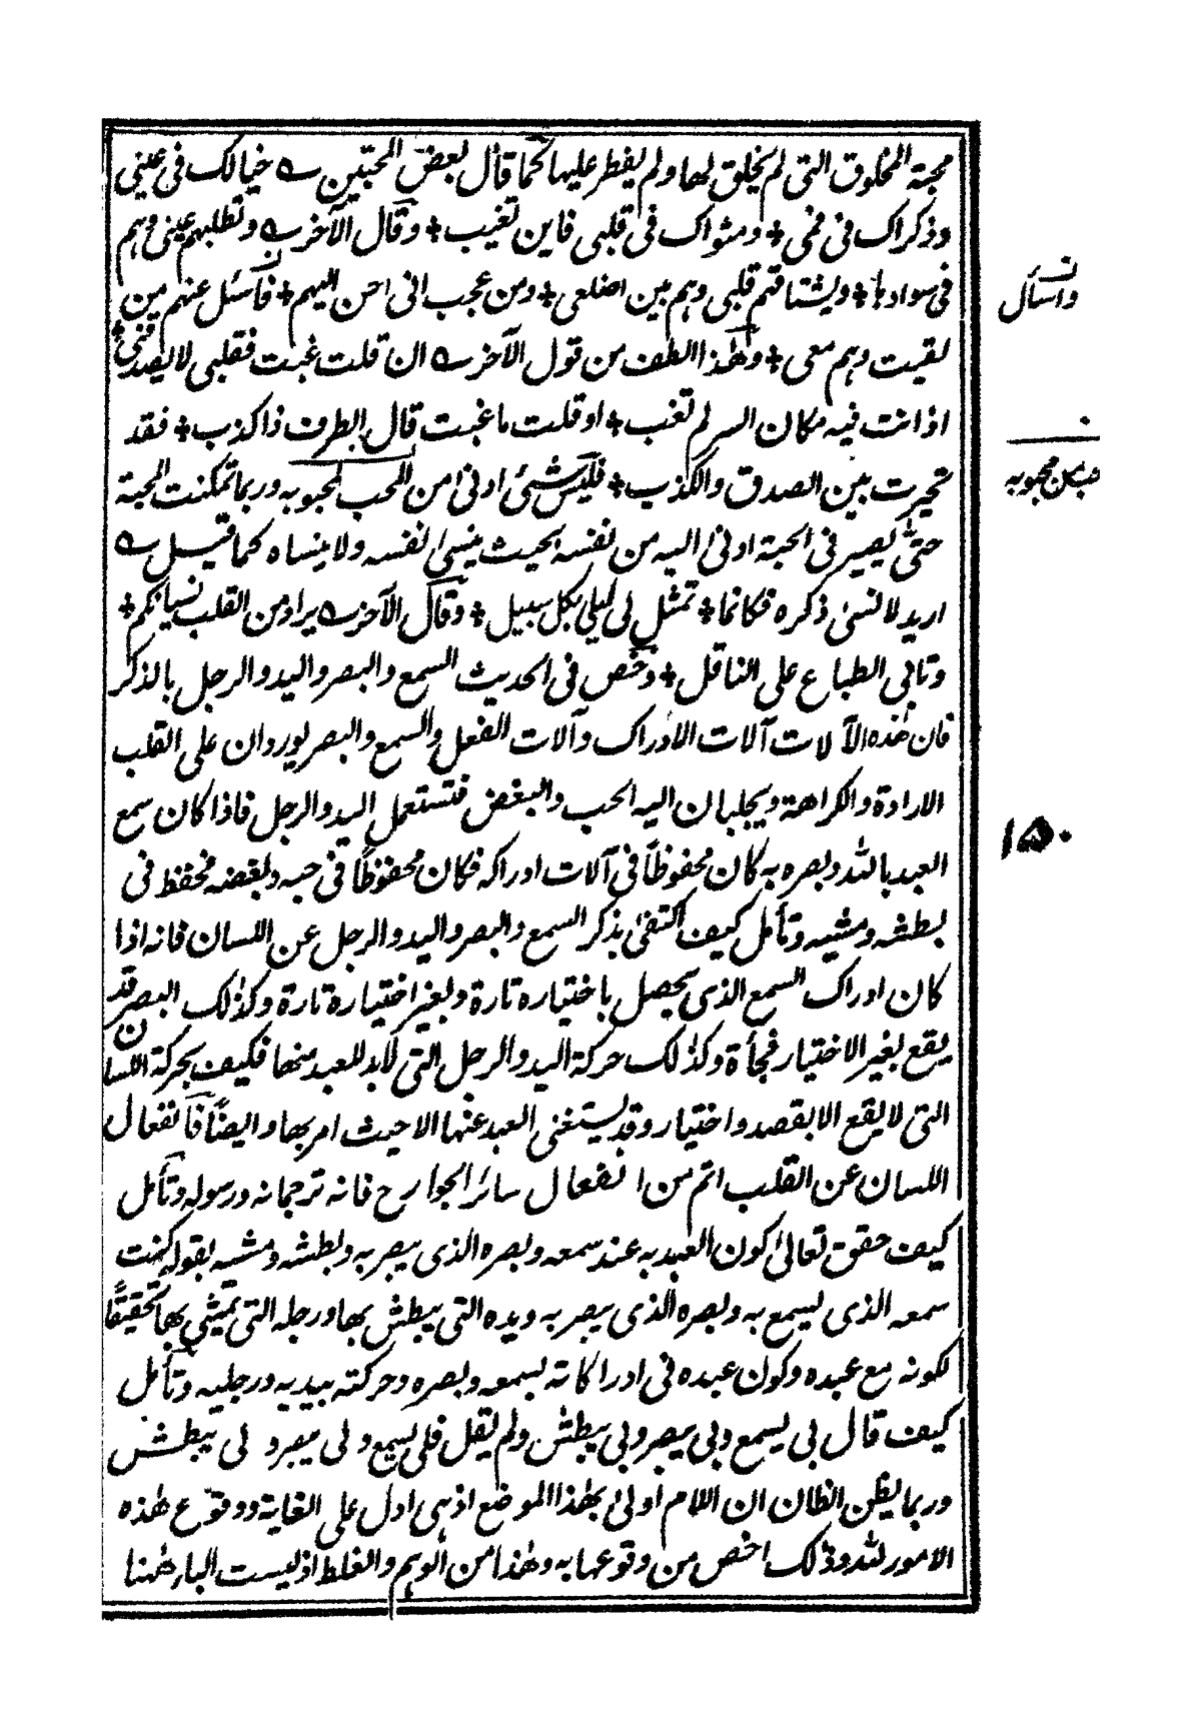 محبة المخلوق التى لم يخلق لها ولم يفطر عليها كما قال بعض المحبين ؎ خيالك فى عينى
وذكراك فى فمى ✤ ومثواك فى قلبى فاين تغيب ✤ وقال الآخر ؎ وتطلبهم عينى وهم
فى سوادها ✤ ويشتاقهم قلبى وهم بين اضلعى ✤ ومن عجب انى احن اليهم ✤ فاسئل عنهم من
لقيت وهم معى ✤ وهٰذا الطف من قول الآخر ؎ ان قلت غبت فقلبى لا يصدقنى ✤
اذ انت فيه مكان السر لم تغب ✤ او قلت ما غبت قال الطرف ذا كذب ✤ فقد
تحيرت بين الصدق والكذب ✤ فليس شئ ادنىٰ من المحب لمحبوبه وربما تمكنت المحبة
حتىٰ يصير فى المحبة ادنىٰ اليه من نفسه بحيث ينسىٰ نفسه ولا ينساه كما قيل ؎
اريد لانسىٰ ذكره فكانما ✤ تمثل لى ليلىٰ بكل سبيل ✤ وقال الآخر ؎ يراد من القلب نسيانكم ✤
وتابى الطباع على الناقل ✤ وخص فى الحديث السمع والبصر واليد والرجل بالذكر
فان هٰذه الآلات آلات الادراك وآلات الفعل والسمع والبصر يوردان على القلب
الارادة والكراهة ويجلبان اليه الحب والبغض فتستعمل اليد والرجل فاذا كان سمع
العبد بالله وبصره به كان محفوظا فى آلات ادراكه فكان محفوظًا فى حبه وبغضه فحفظ فى
بطشه ومشيه وتأمل كيف اكتفىٰ بذكر السمع والبصر واليد والرجل عن اللسان فانه اذا
كان ادراك السمع الذى يحصل باختياره تارة وبغير اختياره تارة وكذٰلك البصر قد
يقع بغير الاختيار فجأة وكذٰلك حركة اليد والرجل التى لابد للعبد منها فكيف بحركة اللسان
التى لا يقع الا بقصد واختيار وقد يستغنى العبد عنها الا حيث امر بها وايضًا فانفعال
اللسان عن القلب اتم من انفعال سائر الجوارح فانه ترجمانه ورسوله وتأمل
كيف حقق تعالىٰ كون العبد به عند سمعه وبصره الذى يبصر به وبطشه ومشيه بقوله كنت
سمعه الذى يسمع به وبصره الذى يبصر به ويده التى يبطش بها ورجله التى يمشى بها تحقيقًا
لكونه مع عبده وكون عبده فى ادراكاته بسمعه وبصره وحركته بيديه ورجليه وتأمل
كيف قال بى يسمع وبى يبصر وبى يبطش ولم يقل فلى يسمع ولى يبصر ولى يبطش
وربما يظن الظان ان اللام اولىٰ بهٰذا الموضع اذ هى ادل على الغاية ووقوع هٰذه
الامور لله وذٰلك اخص من وقوعها به وهٰذا من الوهم والغلط اذ ليست الباء هٰهنا
واسأل
من محبوبه
١٥٠